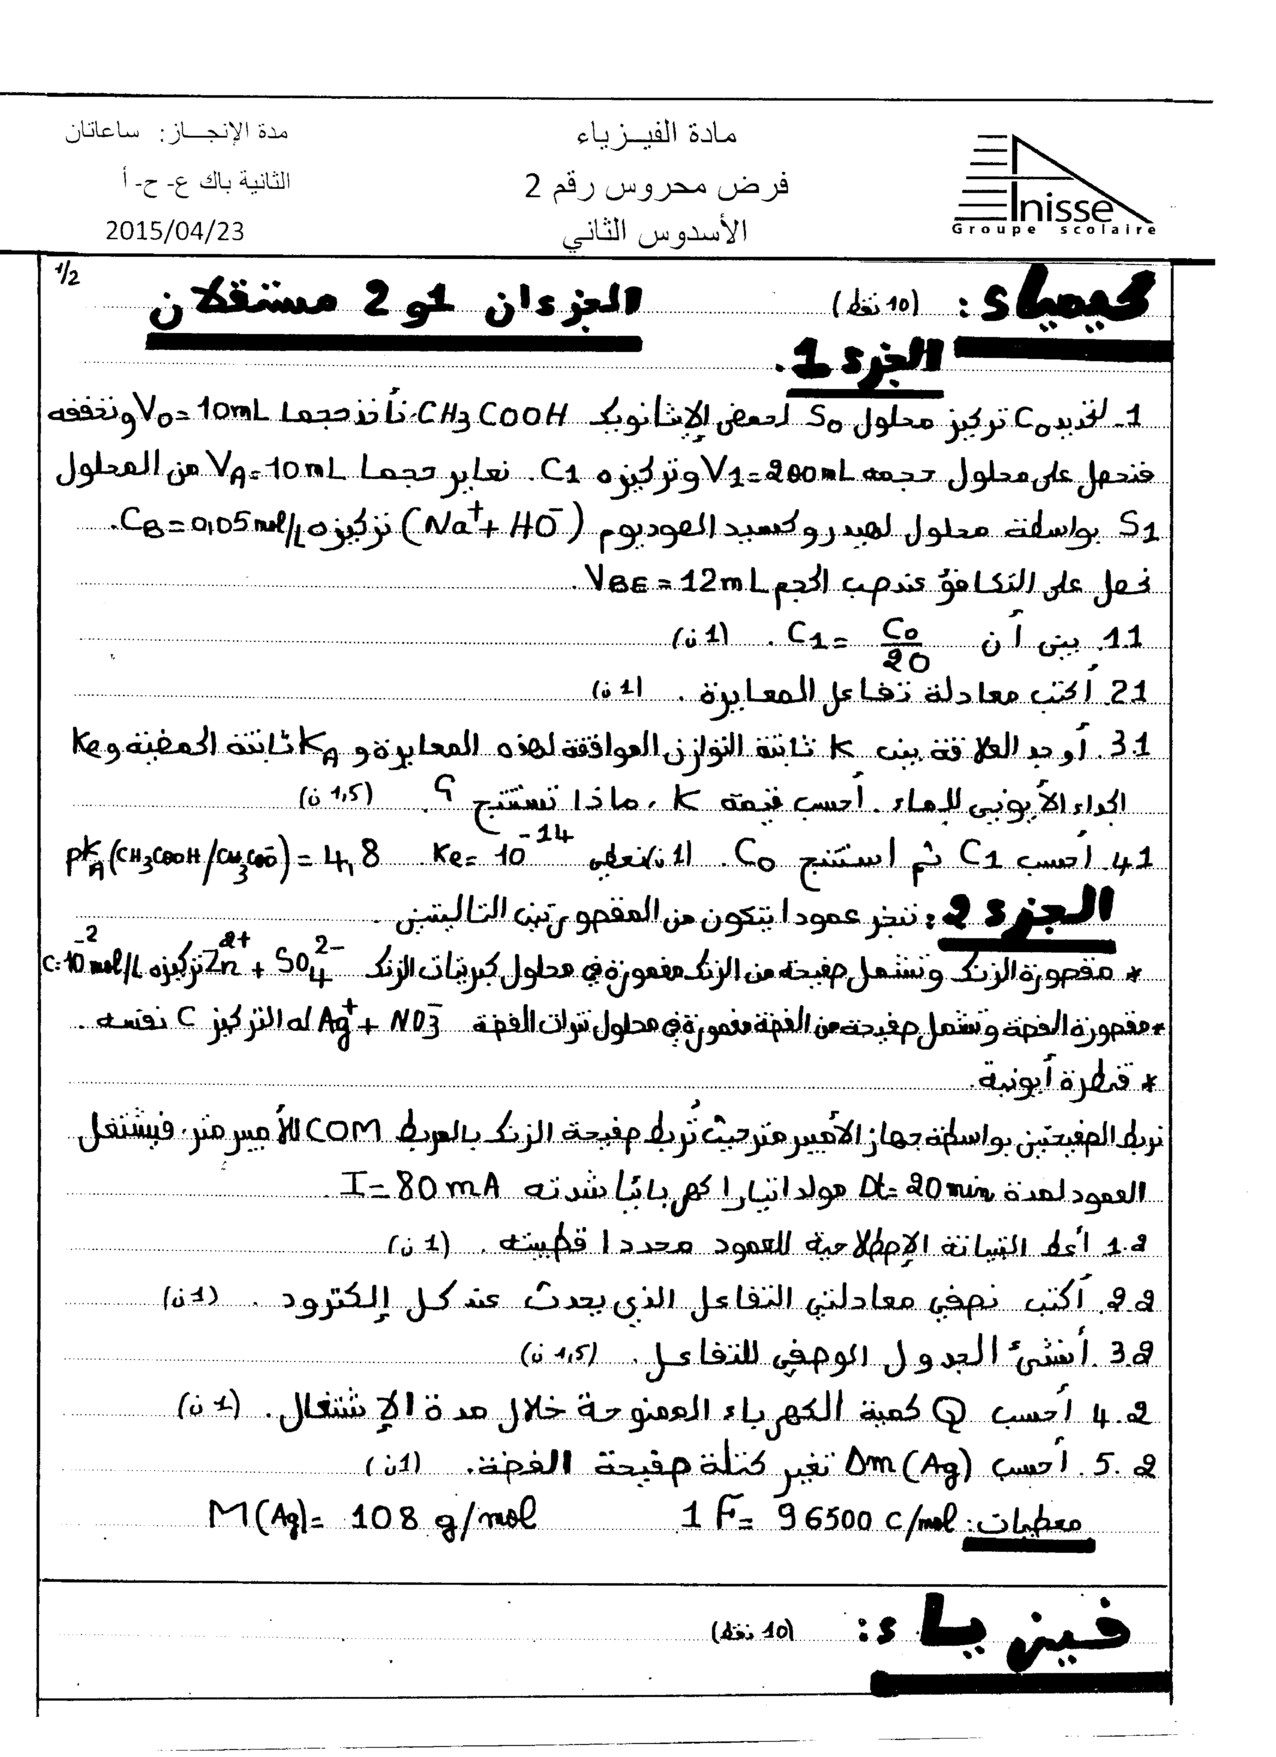 مادة الفيـزياء
مدة الإنجـاز: ساعاتان
فرض محروس رقم 2
الثانية باك ع- ح- أ
الأسدوس الثاني
2015/04/23
Anisse
Groupe scolaire
1/2
كيمياء: (10 نقط) الجزءان 1 و 2 مستقلان
الجزء 1.
1. لتحديد C0 تركيز محلول S0 لحمض الإيثانويك CH3COOH نأخذ حجما V0=10mL ونخففه
فنحصل على محلول حجمه V1=200mL وتركيزه C1. نعاير حجما VA=10mL من المحلول
S1 بواسطة محلول لهيدروكسيد الصوديوم (Na⁺+HO⁻) تركيزه CB=0,05mol/L.
نحصل على التكافؤ عند صب الحجم VBE=12mL.
1.1. بين أن C1 = C0/20. (1 ن)
2.1. أكتب معادلة تفاعل المعايرة. (1 ن)
3.1. أوجد العلاقة بين K ثابتة التوازن الموافقة لهذه المعايرة و KA ثابتة الحمضية و Ke
الجداء الأيوني للماء. أحسب قيمة K، ماذا تستنتج ؟ (1,5 ن)
4.1. أحسب C1 ثم استنتج C0. (1 ن) نعطي Ke=10⁻¹⁴ pKA(CH3COOH/CH3COO⁻)=4,8
الجزء 2: ننجز عمودا يتكون من المقصورتين التاليتين.
* مقصورة الزنك وتشمل صفيحة من الزنك مغمورة في محلول كبريتات الزنك Zn²⁺+SO4²⁻ تركيزه C=10⁻²mol/L
* مقصورة الفضة وتشمل صفيحة من الفضة مغمورة في محلول نترات الفضة Ag⁺+NO3⁻ له التركيز C نفسه.
* قنطرة أيونية.
نربط الصفيحتين بواسطة جهاز الأمبير متر حيث تُربط صفيحة الزنك بالمربط COM للأمبير متر. فيشتغل
العمود لمدة Dt=20min مولدا تيارا كهربائيا شدته I=80mA.
1.2 أعط التبيانة الإصطلاحية للعمود محددا قطبيته. (1 ن)
2.2. أكتب نصفي معادلتي التفاعل الذي يحدث عند كل إلكترود. (1 ن)
3.2. أنشئ الجدول الوصفي للتفاعل. (1,5 ن)
4.2 أحسب Q كمية الكهرباء الممنوحة خلال مدة الإشتغال. (1 ن)
5.2. أحسب Δm(Ag) تغير كتلة صفيحة الفضة. (1 ن)
معطيات: 1F=96500 C/mol M(Ag)=108 g/mol
فيزياء: (10 نقط)